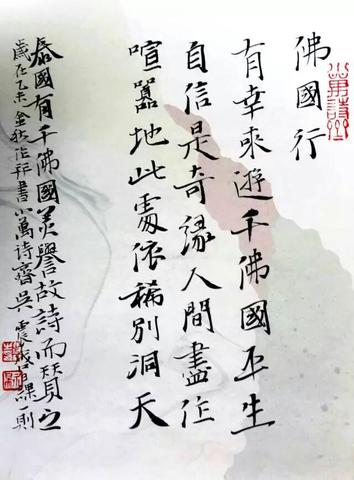 佛國行
有幸來遊千佛國平生
自信是奇緣人間盡作
喧囂地此處依稀別洞天
泰國有千佛國美譽故詩而贊之
歲在乙未金秋書小萬詩齋吳震一則